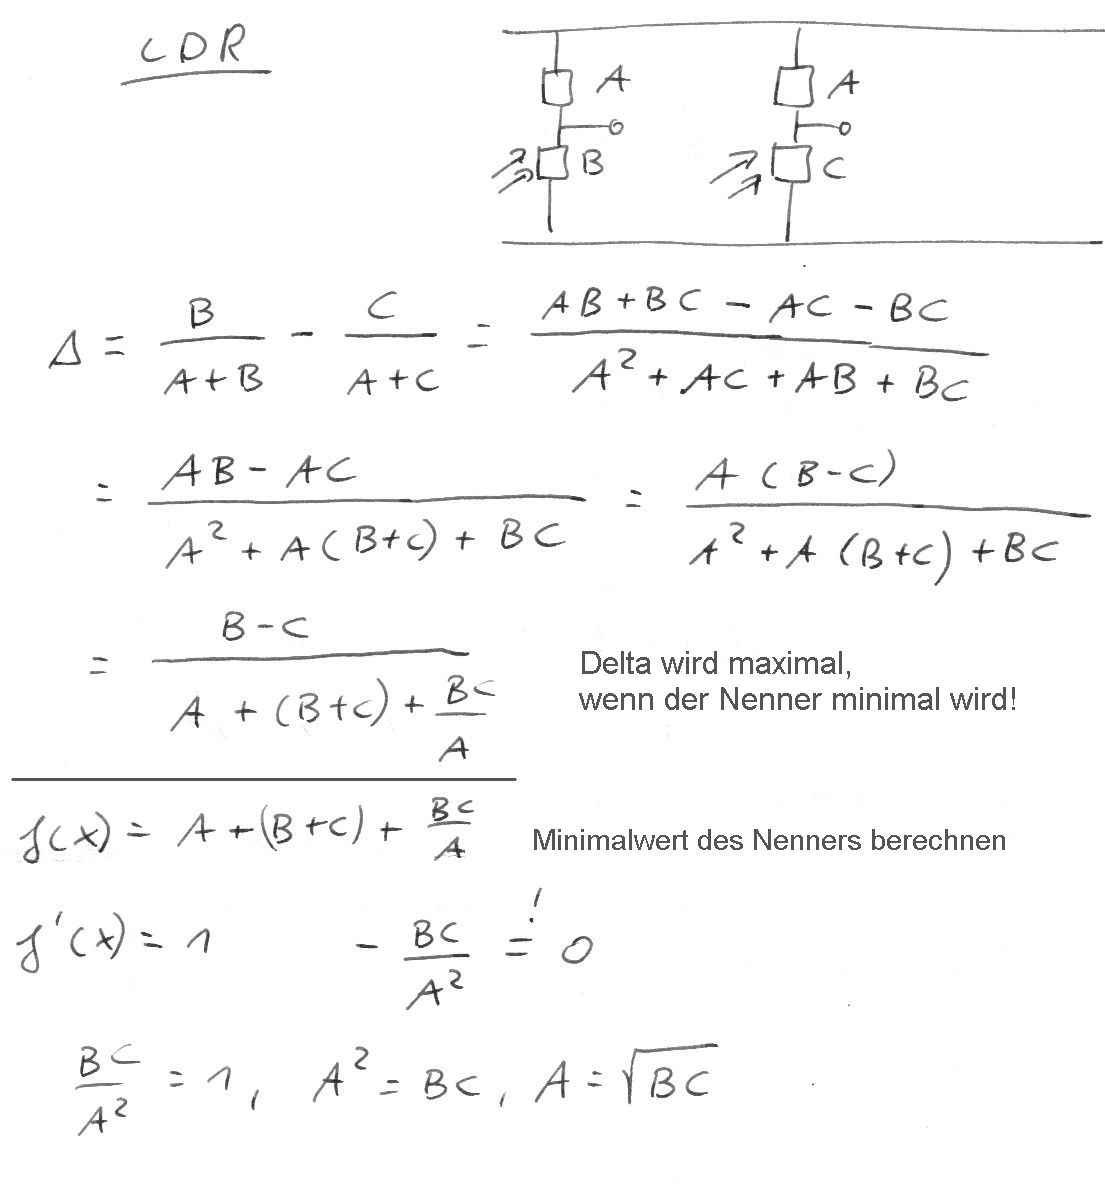 LDR
A A
B C
Δ = B/(A+B) - C/(A+C) = (AB+BC - AC - BC)/(A² + AC + AB + BC)
= (AB - AC)/(A² + A(B+C) + BC) = A(B-C)/(A² + A(B+C) + BC)
= (B-C)/(A + (B+C) + BC/A)
Delta wird maximal,
wenn der Nenner minimal wird!
f(x) = A + (B+C) + BC/A
Minimalwert des Nenners berechnen
f'(x) = 1 - BC/A² =! 0
BC/A² = 1, A² = BC, A = √BC